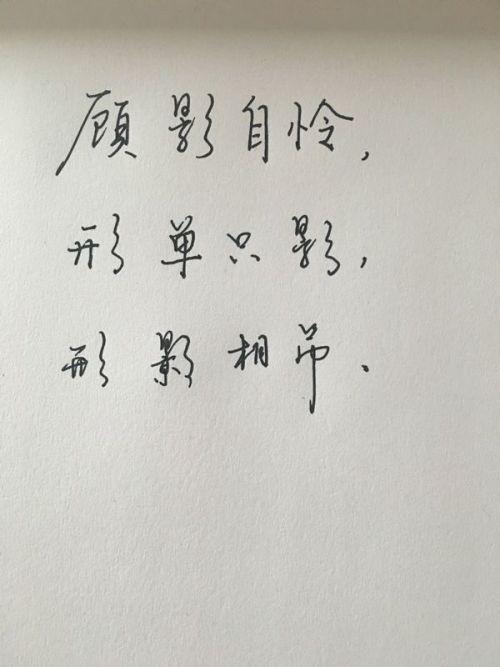 顾影自怜,
形单只影,
形影相吊.